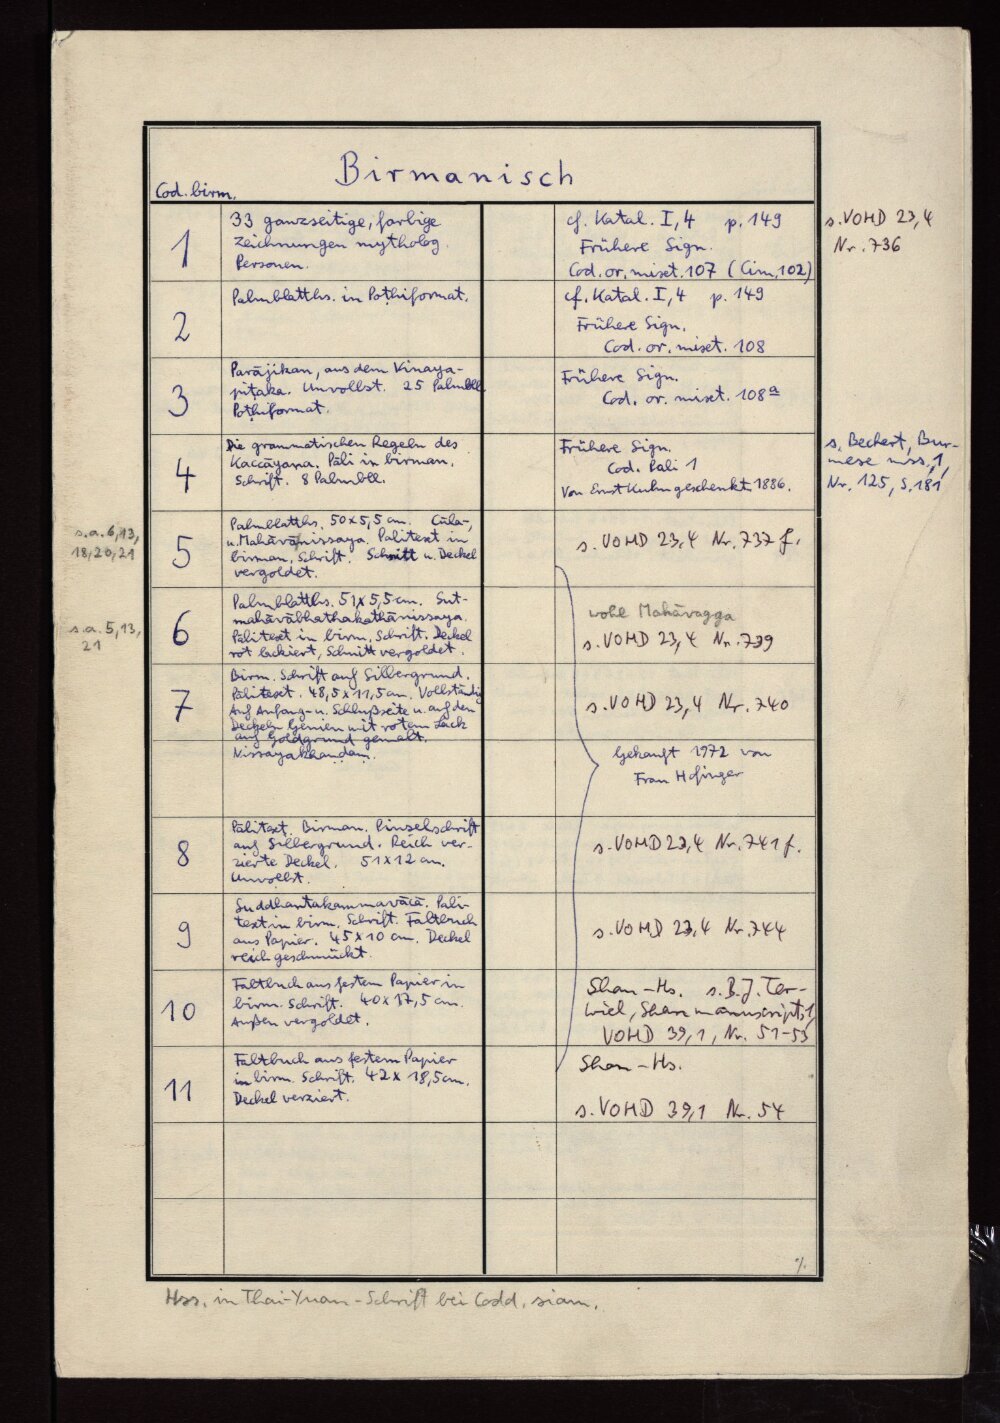 Birmanisch
Cod. birm.
1
33 ganzseitige, farbige
Zeichnungen mytholog.
Personen.
cf. Katal. I, 4 p. 149
Frühere Sign.
Cod. or. misct. 107 (Cim. 102)
s. VOHD 23,4
Nr. 736
2
Palmblatths. in Pothiformat.
cf. Katal. I, 4 p. 149
Frühere Sign.
Cod. or. misct. 108
3
Parājikan, aus dem Vinaya-
piṭaka. Unvollst. 25 Palmbll.
Pothiformat.
Frühere Sign.
Cod. or. misct. 108a
4
Die grammatischen Regeln des
Kaccāyana. Pāli in birman.
Schrift. 8 Palmbll.
Frühere Sign.
Cod. Pali 1
Von Ernst Kuhn geschenkt 1886.
s. Bechert, Bur-
mese mss. 1,
Nr. 125, S. 181
s.a. 6, 13,
18, 20, 21
5
Palmblatths. 50x5,5 cm. Cūla-,
u. Mahāvaṇissaya. Palitext in
birman. Schrift. Schnitt u. Deckel
vergoldet.
s. VOHD 23,4 Nr. 737 f.
s.a. 5, 13,
21
6
Palmblatths. 51x5,5 cm. Sut-
mahāvābhathakathānissaya.
Pālitext in birm. Schrift. Deckel
rot lackiert, Schnitt vergoldet.
wohl Mahāvagga
s. VOHD 23,4 Nr. 739
7
Birm. Schrift auf Silbergrund.
Pālitext. 48,5x11,5 cm. Vollständig
Auf Anfang- u. Schlußseite u. auf den
Deckeln Genien mit rotem Lack
auf Goldgrund gemalt.
Nissayakkandam.
s. VOHD 23,4 Nr. 740
Gekauft 1972 von
Frau Hofinger
8
Pālitext. Birman. Pinselschrift
auf Silbergrund. Reich ver-
zierte Deckel. 51x12 cm.
Unvollst.
s. VOHD 23,4 Nr. 741 f.
9
Suddhantakammavācā. Pali-
text in birm. Schrift. Faltbuch
aus Papier. 45x10 cm. Deckel
reich geschmückt.
s. VOHD 23,4 Nr. 744
10
Faltbuch aus festem Papier in
birm. Schrift. 40x17,5 cm.
Außen vergoldet.
Shan-Hs. s. B.J. Ter-
wiel, Shan manuscripts, 1
VOHD 39,1, Nr. 51-53
11
Faltbuch aus festem Papier
in birm. Schrift. 42x18,5 cm.
Deckel verziert.
Shan-Hs.
s. VOHD 39,1 Nr. 54
./.
Hss. in Thai-Yuan-Schrift bei Codd. siam.